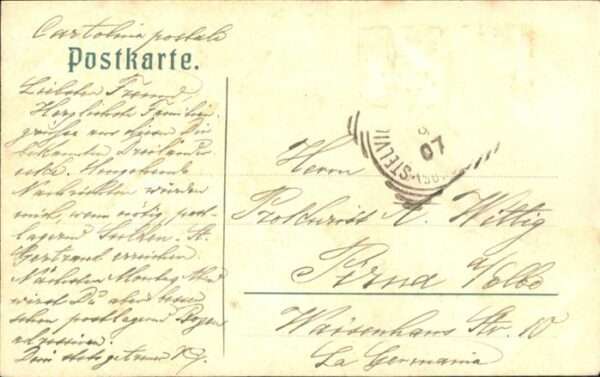 Cartolina postale
Postkarte.
Liebster Freund,
Herzlichste Familien-
grüsse aus dieser Dir
bekannten Dreiländer-
ecke. Umgehende
Nachrichten würden
mich, wenn nötig, post-
lagernd Sulden-St.
Gertraud erreichen.
Nächsten Montag Abd
wirst Du aber besser
schon postlagernd Bozen
adressieren.
Dein stets getreuer
STELVIO
07
Herrn
Prokurist A. Wittig
Pirna a/Elbe
Waisenhaus Str. 10
La Germania